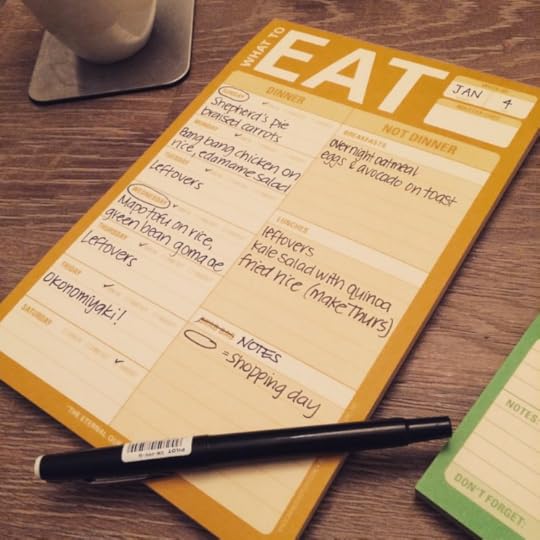 WHAT TO
EAT
JAN 4
DINNER
SUNDAY
Shepherd's pie
braised carrots
Bang bang chicken on
rice, edamame salad
TUESDAY
Leftovers
WEDNESDAY
Mapo tofu on rice,
green bean goma ae
THURSDAY
Leftovers
FRIDAY
Okonomiyaki!
SATURDAY
NOT DINNER
BREAKFASTS
overnight oatmeal
eggs & avocado on toast
LUNCHES
leftovers
Kale salad with quinoa
fried rice (make Thurs)
NOTES
= shopping day
"THE ETERNAL
PILOT
NOTES
DON'T FORGET: